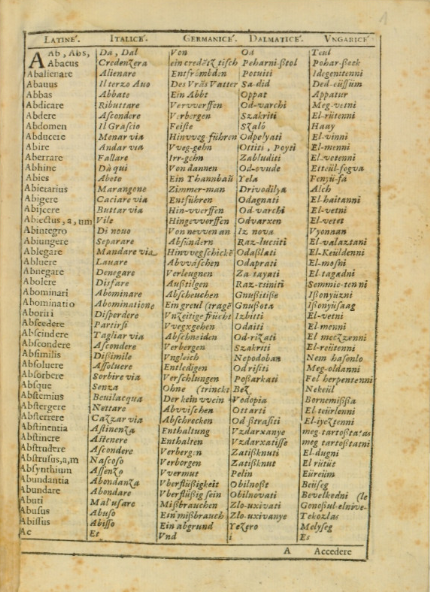 LATINE. ITALICE. GERMANICE. DALMATICE. VNGARICE.
A Ab, Abs, Da, Dal Von Od Toul
Abacus Credenzera ein credētz tisch Peharni-ſtol Pohar-ſzek
Abalienare Alienare Entfrömbden Potuiti Idegenitenni
Abauus Il terzo Auo Des Vrās Vatter Sa-did Ded-
Abbas Abbate Ein Abbt Oppat Appatur
Abdicare Ributtare Vervverffen Od-varchi Meg-vetni
Abdere Aſcondere Verbergen Szakriti El-rütenni
Abdomen Il Graſcio Feiſte Szaló Haay
Abducere Menar via Hinvveg-führen Odpelyati El-vinni
Abire Andar via Vveg-gehn Ottiti, Poyti El-menni
Aberrare Fallare Irr-gehn Zabluditi El-vetenni
Abhinc Da qui Von dannen Od-ovude
Abies Abete Ein Thannbaū Yela Fenyü-fa
Abietarius Marangone Zimmer-man Drivodilya Alch
Abigere Caciare via Entführen Odagnati El-haitanni
Abijcere Buttar via Hin-vverffen Od-varchi El-vetni
Abiectus, a, um Vile Hingevverffen Odvarxen El-vetet
Abintegro Di nouo Von nevven an Iz nova Vyonnan
Abiungere Separare Abſondern Raz-lucsiti El-valaztani
Ablegare Mandare via Hinvvegſchickē Odaſlati El-Keuldenni
Abluere Lanare Abvvaſchen Odaprati El-moſni
Abnegare Denegare Verleugnen Za-tayati El-tagadni
Abolere Disfare Außtilgen Raz-csiniti Semmie-tenni
Abominari Abominare Abſcheuchen Gnuſitiſie Iſzonyüzni
Abominatio Abominatione Ein greul Gnuſota Iſzonyüſaag
Aboriri Disperdere Vnzeitige Izbiti El-vetni
Abſcedere Partirſi Vvegxgehen Odaiti El-menni
Abſcindere Tagliar via Abſchneiden Od-rizati El-metſzenni
Abſcondere Aſcondere Verbergen Szakriti El-reütenni
Abſimilis Diſimile Vngleich Nepodoban Nem haſonlo
Abſoluere Aſſoluere Entledigen Od riſiti Meg-oldanni
Abſorbere Sorbire via Verſchlungen Poſſarkati Fel herpentenni
Absque Senza Ohne (trincke Bez Nekeül
Abſtemius Beuilacqua Der kein vvein Vodopia Bornemiſſza
Abſtergere Nettare Abvviſchen Ottarti El-teürlenni
Abſterrere Cazzar via Abſchrecken Od ſtraſiti El-iyeztenni
Abſtinentia Aſtinenza Enthaltung Vzdarxanye meg-tartoſtatas
Abſtinere Aſtenere Enthalten Vzdarxatiſſe meg tartoſtatni
Abſtrudere Aſcondere Verbergen Zatiſknuti El-dugni
Abſtruſus, a, m Naſcoſo Verborgen Zatiſknut El rütüt
Abſynthium Aſſenzo Vvermut Pelin Eüreüm
Abundantia Abondanza Vberflüßigkeit Obilnoſt Beüſeg
Abundare Abondare Vberflüßig ſein Obilnovati Bevelkedni
Abuti Mal'uſare Mißbrauchen Zlo-uxivati
Abuſus Abuſo Ein mißbrauch Zlo-uxivanye Tekozlas
Abiſſus Abiſſo Ein abgrund Yezero Melyſeg
Ac Et Vnd i Es
A Accedere